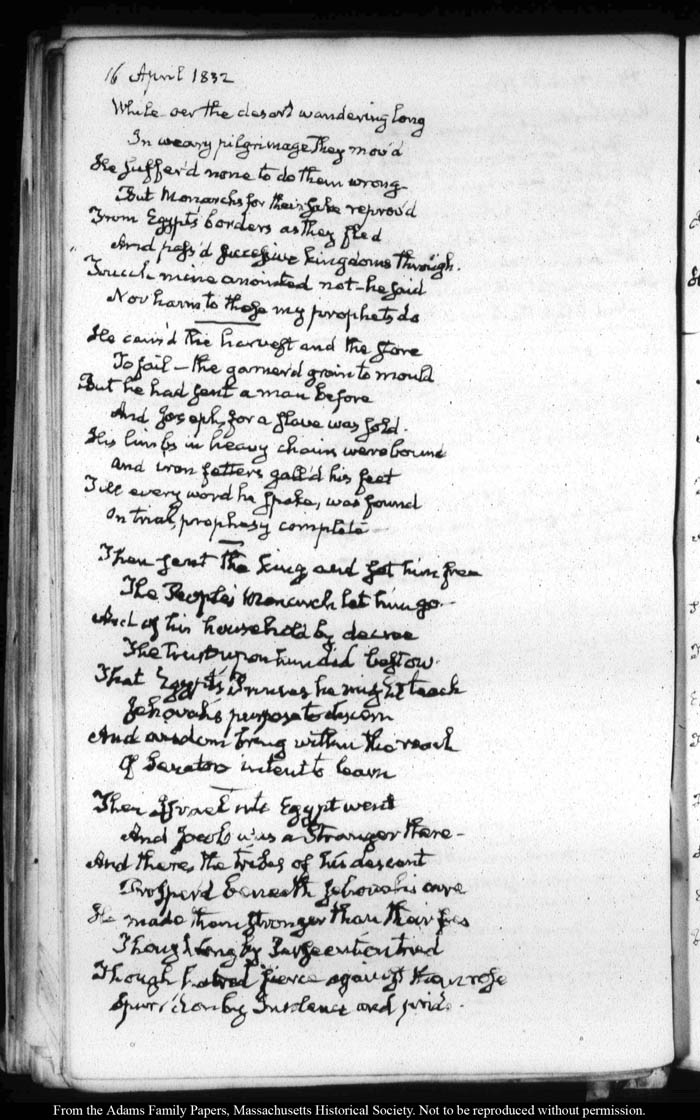 16 April 1832
While oer the desart wandering long
In weary pilgrimage They mov'd
He suffer'd none to do them wrong
But Monarchs for their sake reprov'd
From Egypts borders as they fled
And pass'd successive kingdoms through.
Touch mine anointed not—he said
Nor harm to those my prophets do
He caus'd the harvest and the store
To fail—the garner'd grain to mould
But he had sent a man before
And Joseph, for a slave was sold.
His limbs in heavy chains were bound
And iron fetters gall'd his feet
Till every word he spoke, was found
On trial, prophesy complete
Then sent the King and set him free
The People's Monarch let him go
And of his household by decree
The trust upon him did bestow.
That Egypt's Princes he might teach
Jehovah's purpose to discern
And wisdom bring within the reach
Of Senators intent to learn
Then Israel into Egypt went
And Jacob was a Stranger there—
And there, the tribes of his descent
Prosper'd beneath Jehovah's care
He made them stronger than their foes
Though long by Persecution tried
Though hatred fierce against them rose
Spurr'd on by Insolence and pride.
From the Adams Family Papers, Massachusetts Historical Society. Not to be reproduced without permission.